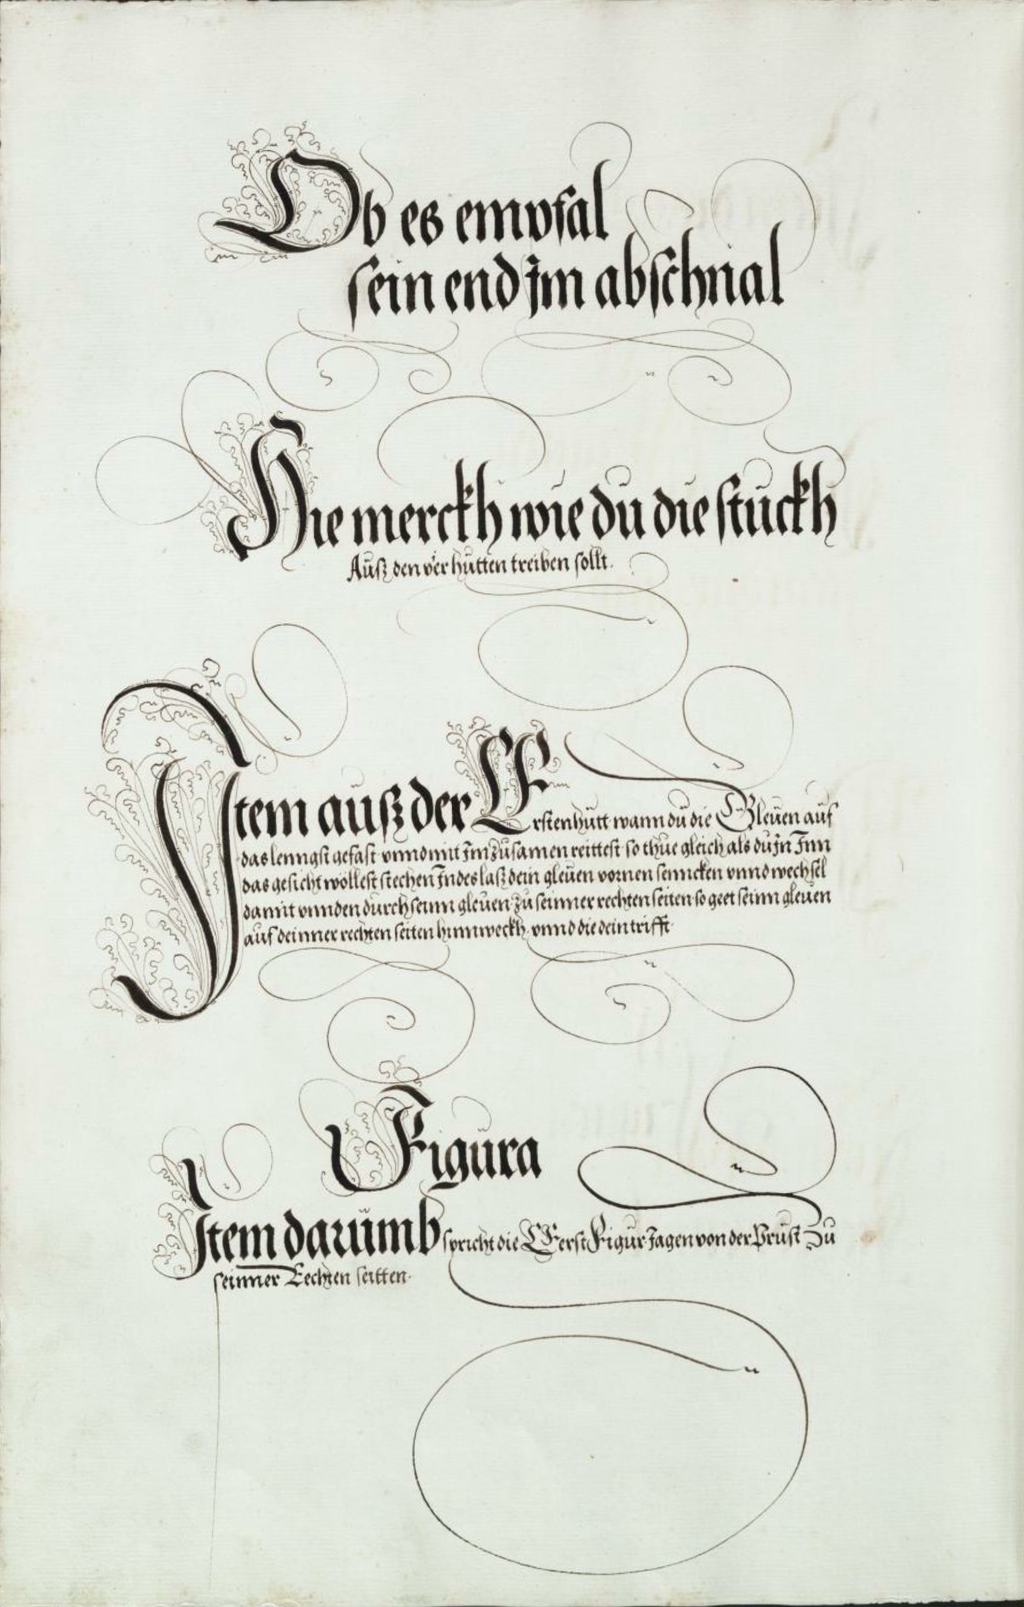 Ob es empfal
sein end Jm abschnal
Hie merckh wie du die stuckh
Auß den vier hutten treiben sollt.
Jtem auß der Ersten hutt wann du die Gleuen auf
das lenngst gefast vnnd mit Jm zusamen reittest so thue gleich als du Jn Jnn
das gesicht wöllest stechen Jndes laß dein gleuen vornen sennckhen vnnd wechsel
damit vnnden durch seinn gleuen zu seinner rechten seiten so geet seinn gleuen
auf deinner rechten seiten hinnweckh vnnd die dein trifft
Figura
Jtem darumb spricht die Erst Figur Jagen von der Prust Zu
seinner Rechten seitten.